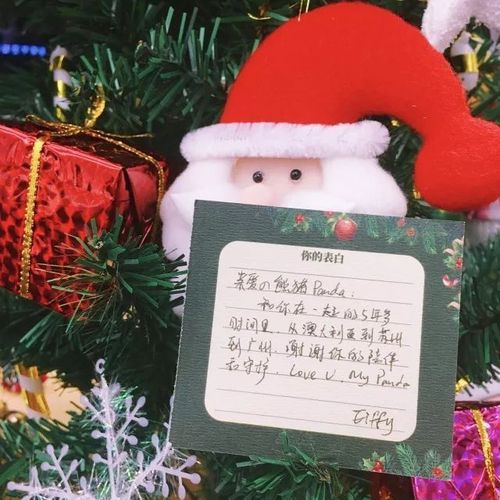 你的表白
亲爱の熊猫Panda:
和你在一起的5年多
时间里，从澳大利亚到苏州
到广州，谢谢你的陪伴
和守护。Love U. My Panda
Effy